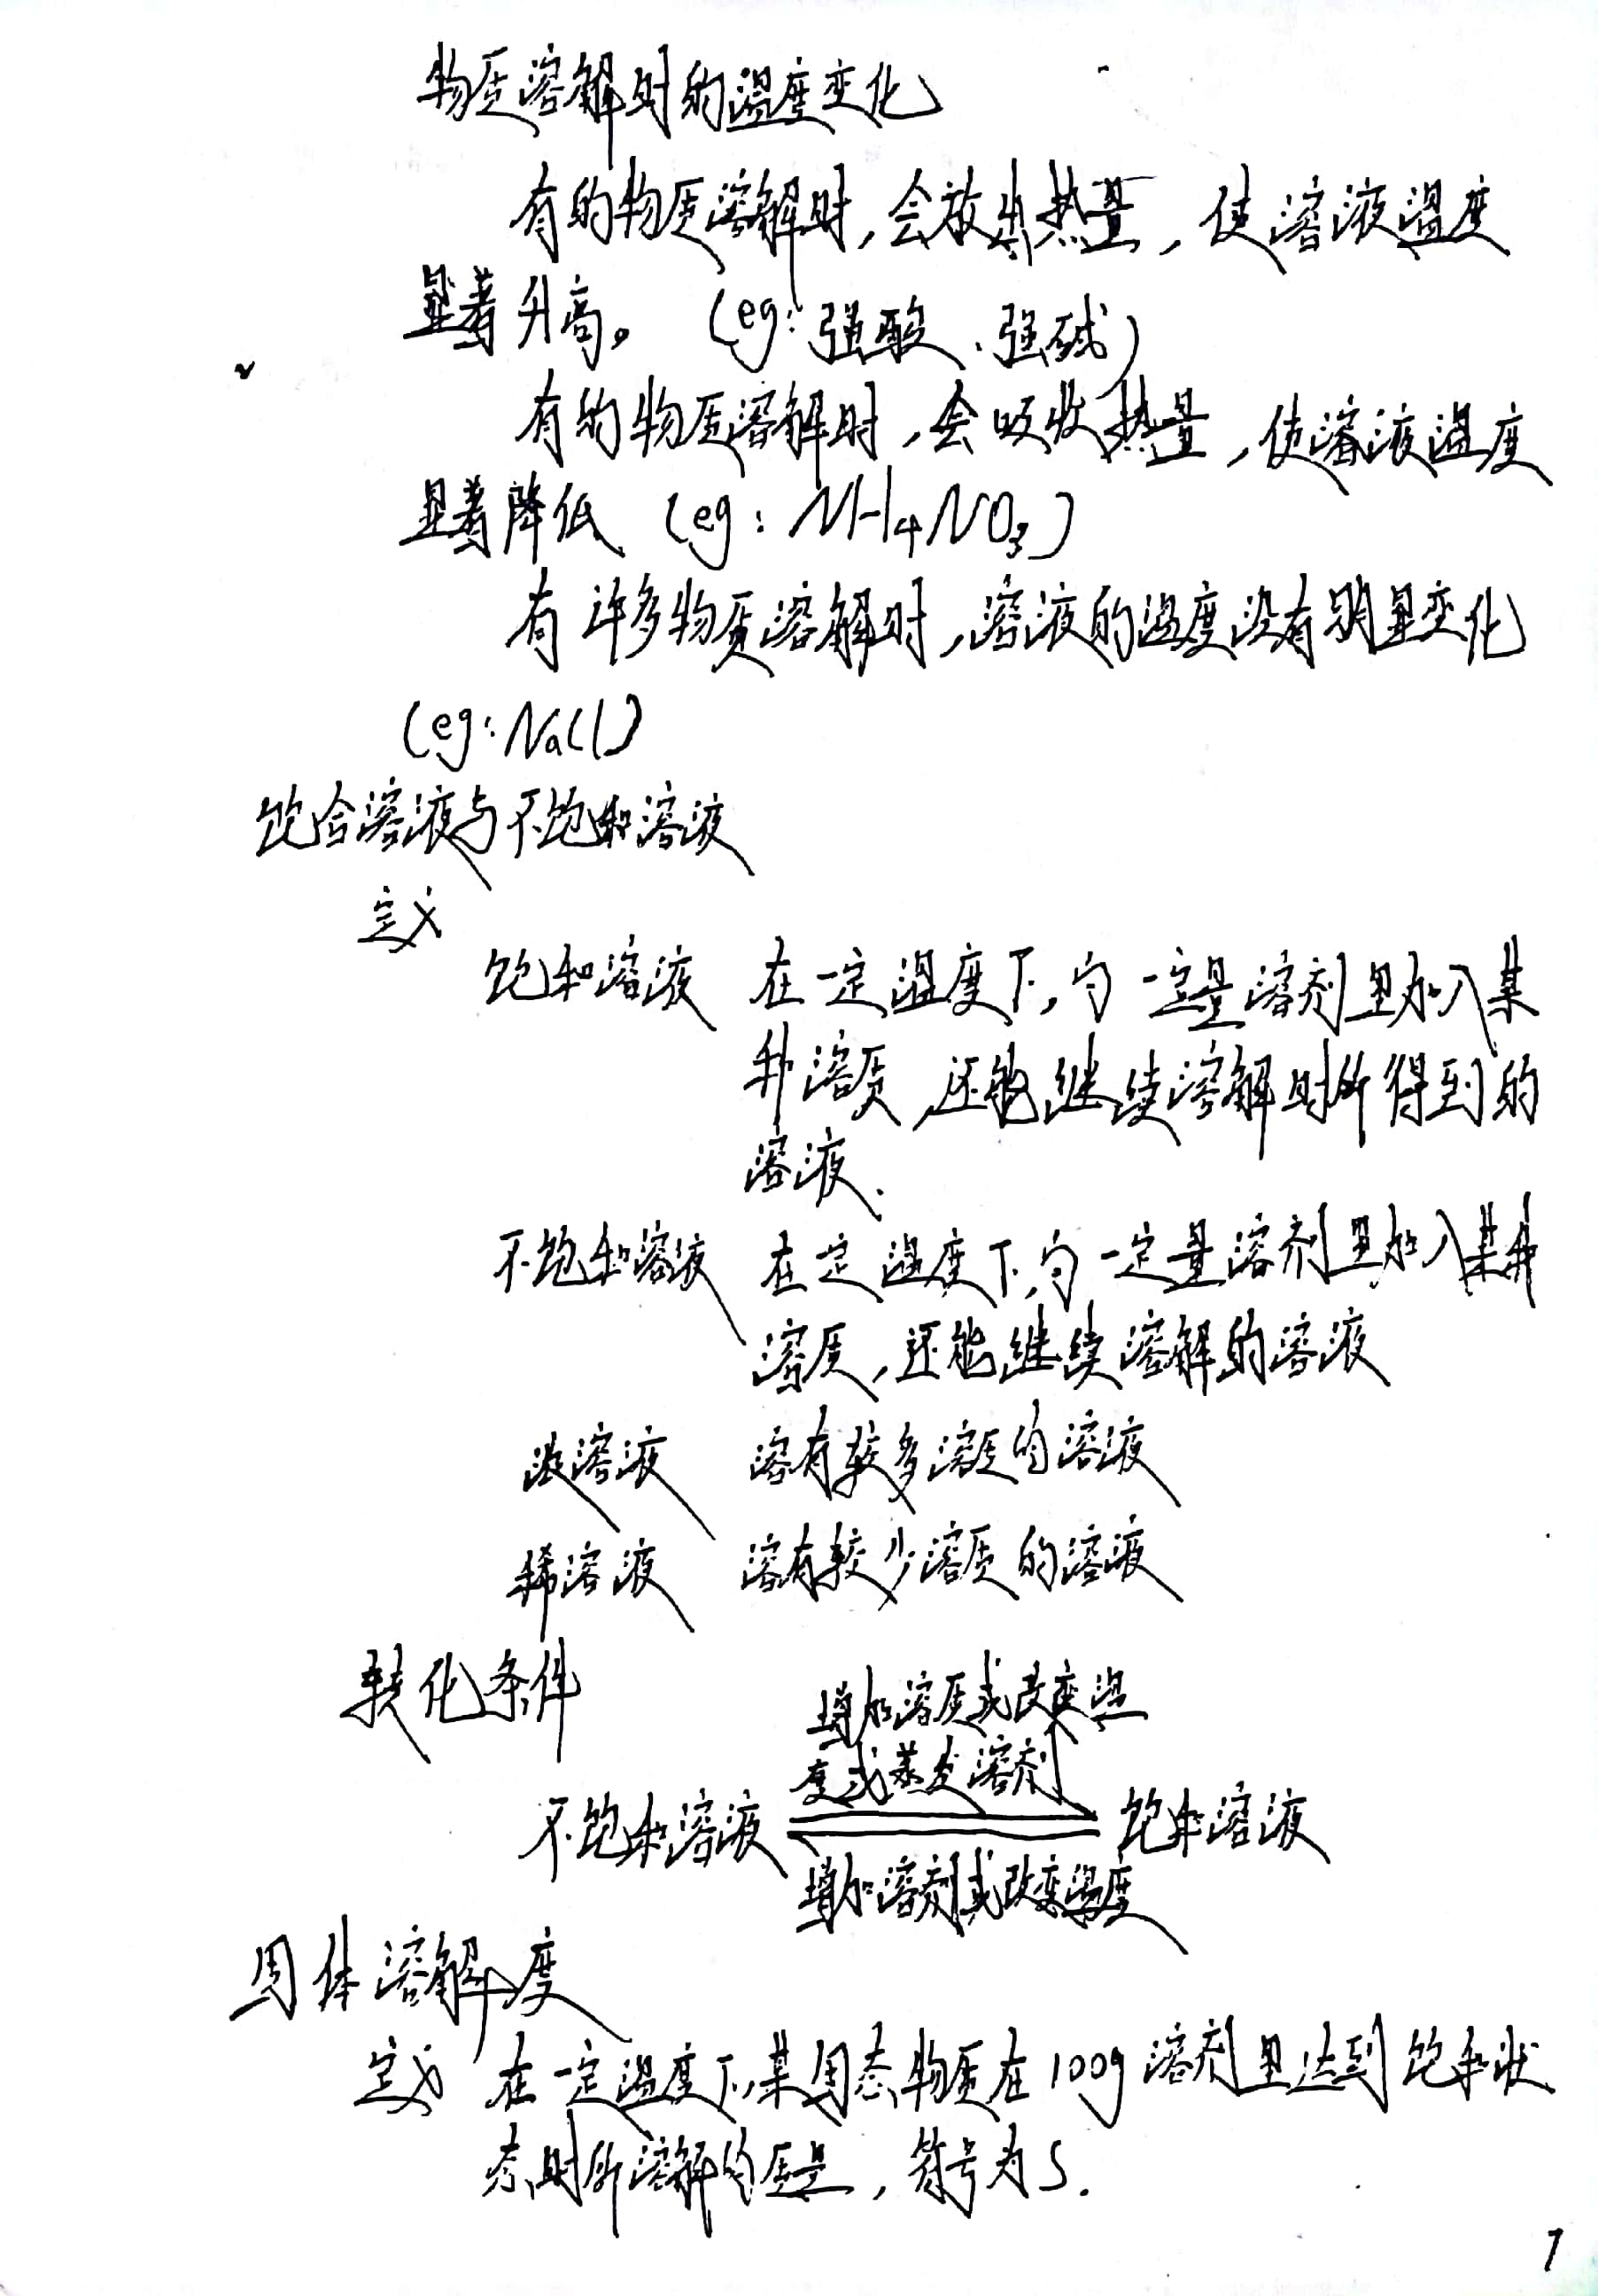 物质溶解时的温度变化
有的物质溶解时,会放出热量,使溶液温度
显著升高。(eg:强酸、强碱)
有的物质溶解时,会吸收热量,使溶液温度
显著降低 (eg:NH4NO3)
有许多物质溶解时,溶液的温度没有明显变化
(eg:NaCl)
饱合溶液与不饱和溶液
定义
饱和溶液 在一定温度下,向一定量溶剂里加入某
种溶质,还能继续溶解时所得到的
溶液.
不饱和溶液 在定温度下,向一定量溶剂里加入某种
溶质,还能继续溶解的溶液
浓溶液 溶有较多溶质的溶液
稀溶液 溶有较少溶质的溶液
转化条件
增加溶质或改变温
度或蒸发溶剂
不饱和溶液 饱和溶液
增加溶剂或改变温度
固体溶解度
定义 在一定温度下,某固态物质在100g溶剂里达到饱和状
态时所溶解的质量,符号为S.
1